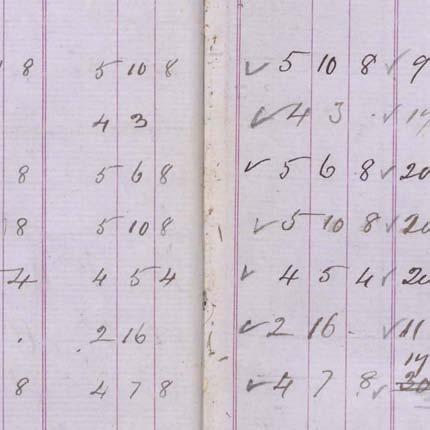 8 5 10 8 ✓ 5 10 8 ✓ 9
4 3 ✓ 4 3 . ✓
8 5 6 8 ✓ 5 6 8 ✓ 20
8 5 10 8 ✓ 5 10 8 ✓ 20
4 4 5 4 ✓ 4 5 4 ✓ 20
. 2 16 ✓ 2 16 . ✓ 11
14
8 4 7 8 ✓ 4 7 8 ✓ 30